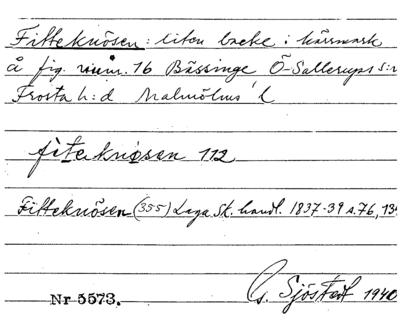 Fitteknösen: liten backe i kärrmark
å fig. num. 16 Bässinge Ö-Sallerups s:n
Frosta h:d Malmöhus l
fiteknösen 112
Fitteknösen (355) Laga Sk. handl. 1837-39 s. 76, 134
Nr 5573. G. Sjöstedt 1940